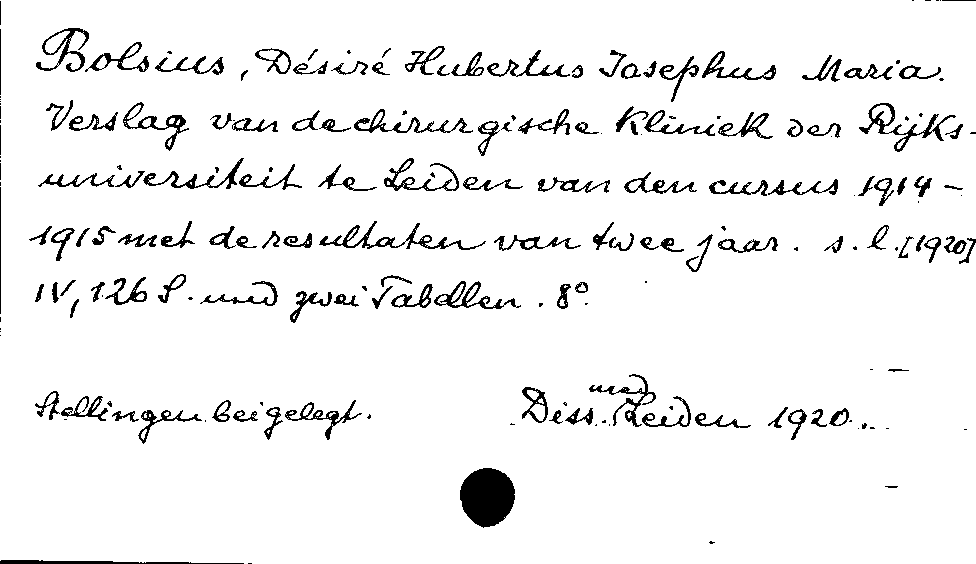 Bolsius, Désiré Hubertus Josephus Maria.
Verslag van de chirurgische Kliniek der Rijks-
universiteit te Leiden van den cursus 1914-
1915 met de resultaten van twee jaar. s. l. [1920]
IV, 126 S. und zwei Tabellen. 8°
Stellingen beigelegt.
Diss. med. Leiden 1920.